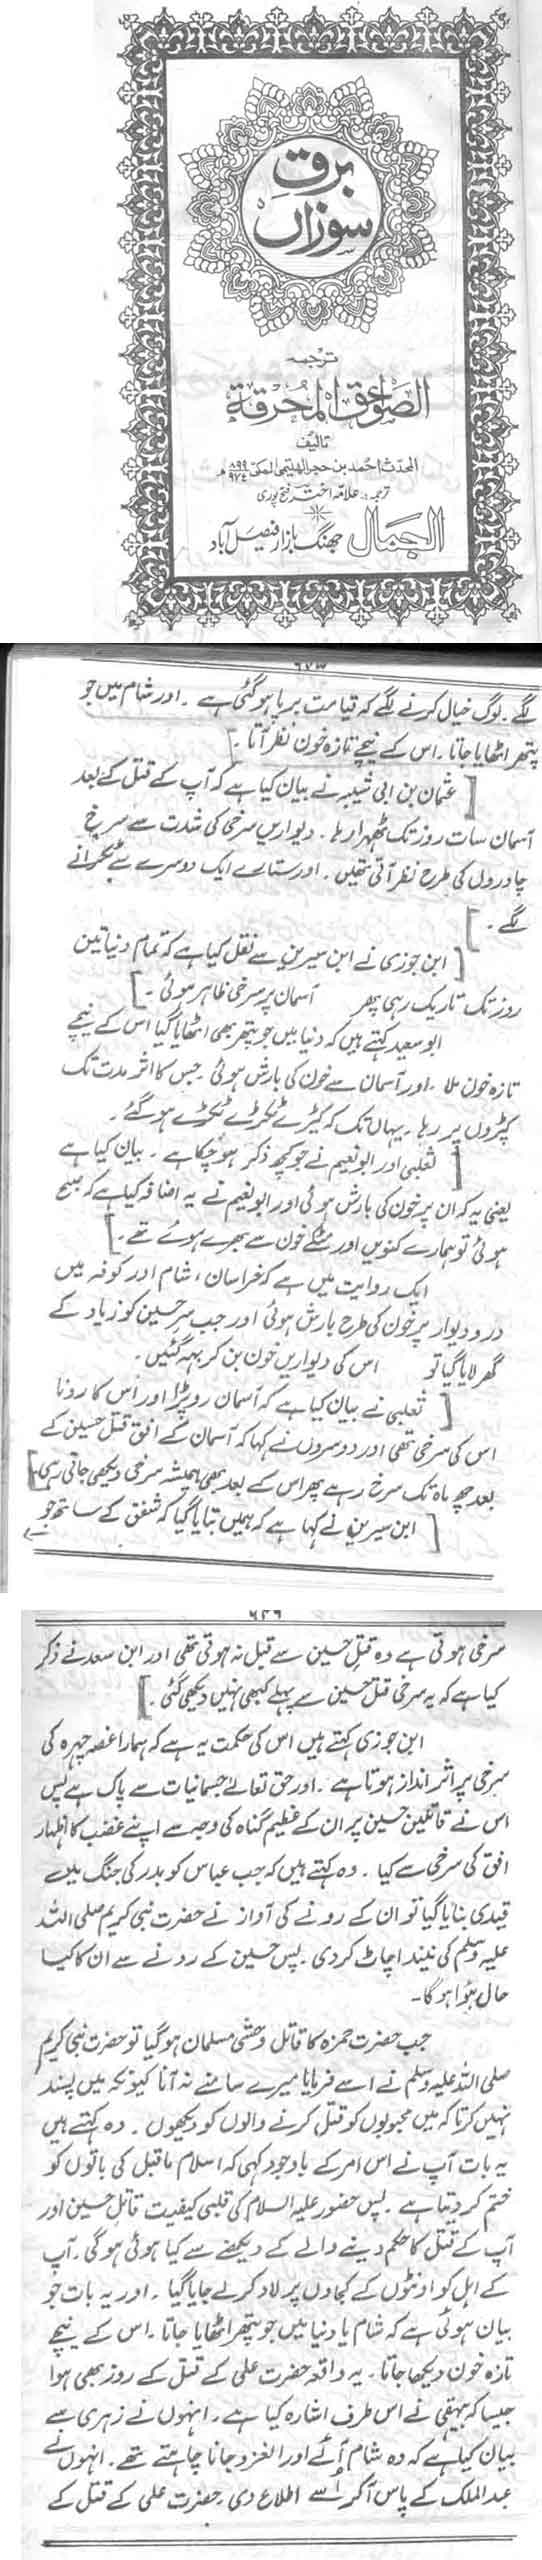 برق
سوزاں
ترجمہ
الصواعق المحرقة
تالیف
المحدث احمد بن حجر الہیتمی المکی ۸۹۹ ۹۷۴ م
ترجمہ:۔ علامہ اختر فتح پوری
الجمال جھنگ بازار فیصل آباد
۶۷۳
لگے۔ لوگ خیال کرنے لگے کہ قیامت برپا ہو گئی ہے۔ اور شام میں جو
پتھر اٹھایا جاتا۔ اس کے نیچے تازہ خون نظر آتا۔
[ عثمان بن ابی شیبہ نے بیان کیا ہے کہ آپ کے قتل کے بعد
آسمان سات روز تک ٹھہرا رہا۔ دیواریں سرخی کی شدت سے سرخ
چادروں کی طرح نظر آتی تھیں۔ اور ستارے ایک دوسرے سے ٹکرانے
لگے۔ ]
[ ابن جوزی نے ابن سیرین سے نقل کیا ہے کہ تمام دنیا تین
روز تک تاریک رہی پھر آسمان پر سرخی ظاہر ہوئی۔ ]
ابو سعید کہتے ہیں کہ دنیا میں جو پتھر بھی اٹھایا گیا اس کے نیچے
تازہ خون ملا۔ اور آسمان سے خون کی بارش ہوئی۔ جس کا اثر مدت تک
کپڑوں پر رہا۔ یہاں تک کہ کپڑے ٹکڑے ٹکڑے ہو گئے۔
[ ثعلبی اور ابو نعیم نے جو کچھ ذکر ہو چکا ہے۔ بیان کیا ہے
یعنی یہ کہ ان پر خون کی بارش ہوئی اور ابو نعیم نے یہ اضافہ کیا ہے کہ صبح
ہوئی تو ہمارے کنویں اور مٹکے خون سے بھرے ہوئے تھے۔ ]
ایک روایت میں ہے کہ خراسان، شام اور کوفہ میں
درو دیوار پر خون کی طرح بارش ہوئی اور جب سر حسین کو زیاد کے
گھر لایا گیا تو اس کی دیواریں خون بن کر بہہ گئیں۔
[ ثعلبی نے بیان کیا ہے کہ آسمان رو پڑا اور اس کا رونا
اس کی سرخی تھی اور دوسروں نے کہا کہ آسمان کے افق قتل حسین کے
بعد چھ ماہ تک سرخ رہے پھر اس کے بعد بھی ہمیشہ سرخی دیکھی جاتی رہی۔ ]
[ ابن سیرین نے کہا ہے کہ ہمیں بتایا گیا کہ شفق کے ساتھ جو
۶۴۶
سرخی ہوتی ہے وہ قتل حسین سے قبل نہ ہوتی تھی اور ابن سعد نے ذکر
کیا ہے کہ یہ سرخی قتل حسین سے پہلے کبھی نہیں دیکھی گئی۔ ]
ابن جوزی کہتے ہیں اس کی حکمت یہ ہے کہ ہمارا غصہ چہرہ کی
سرخی پر اثر انداز ہوتا ہے۔ اور حق تعالیٰ جسمانیات سے پاک ہے پس
اس نے قاتلین حسین پر ان کے عظیم گناہ کی وجہ سے اپنے غضب کا اظہار
افق کی سرخی سے کیا۔ وہ کہتے ہیں کہ جب عباس کو بدر کی جنگ میں
قیدی بنایا گیا تو ان کے رونے کی آواز نے حضرت نبی کریم صلی اللہ
علیہ وسلم کی نیند اچاٹ کر دی۔ پس حسین کے رونے سے ان کا کیا
حال ہوا ہو گا۔
جب حضرت حمزہ کا قاتل وحشی مسلمان ہو گیا تو حضرت نبی کریم
صلی اللہ علیہ وسلم نے اسے فرمایا میرے سامنے نہ آنا کیونکہ میں پسند
نہیں کرتا کہ میں محبوبوں کو قتل کرنے والوں کو دیکھوں۔ وہ کہتے ہیں
یہ بات آپ نے اس امر کے باوجود کہی کہ اسلام ما قبل کی باتوں کو
ختم کر دیتا ہے۔ پس حضور علیہ السلام کی قلبی کیفیت قاتل حسین اور
آپ کے قتل کا حکم دینے والے کے دیکھنے سے کیا ہوئی ہو گی۔ آپ
کے اہل کو اونٹوں کے کجاوں پر لاد کر لے جایا گیا۔ اور یہ بات جو
بیان ہوئی ہے کہ شام یا دنیا میں جو پتھر اٹھایا جاتا۔ اس کے نیچے
تازہ خون دیکھا جاتا۔ یہ واقعہ حضرت علی کے قتل کے روز بھی ہوا
جیسا کہ بیہقی نے اس طرف اشارہ کیا ہے۔ انہوں نے زہری سے
بیان کیا ہے کہ وہ شام آئے اور الغزو جانا چاہتے تھے۔ انہوں نے
عبدالملک کے پاس آکر اُسے اطلاع دی۔ حضرت علی کے قتل کے